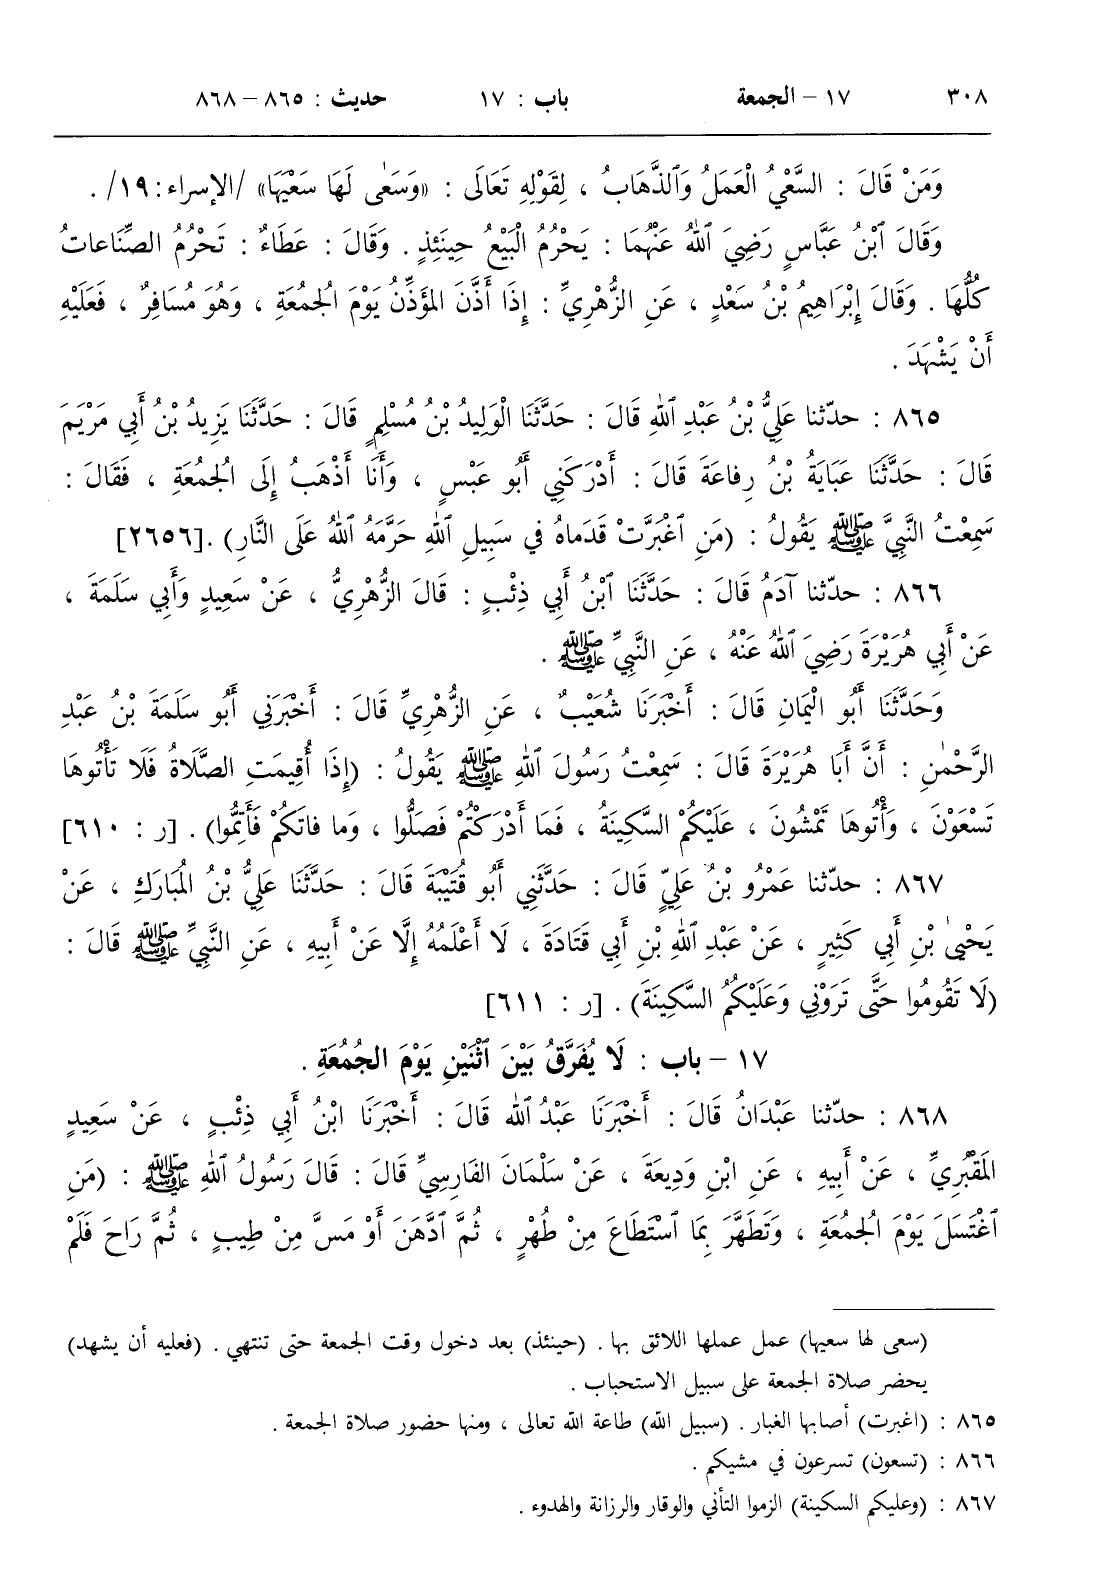 ٣٠٨ ١٧ – الجمعة باب : ١٧ حديث : ٨٦٥ – ٨٦٨
وَمَنْ قَالَ : السَّعْيُ الْعَمَلُ وَٱلذَّهَابُ ، لِقَوْلِهِ تَعَالَى : «وَسَعَى لَهَا سَعْيَهَا» /الإسراء: ١٩/ .
وَقَالَ ٱبْنُ عَبَّاسٍ رَضِيَ ٱللهُ عَنْهُمَا : يَحْرُمُ الْبَيْعُ حِينَئِذٍ . وَقَالَ : عَطَاءٌ : تَحْرُمُ الصِّنَاعَاتُ
كُلُّهَا . وَقَالَ إِبْرَاهِيمُ بْنُ سَعْدٍ ، عَنِ الزُّهْرِيِّ : إِذَا أَذَّنَ المُؤَذِّنُ يَوْمَ الجُمعَةِ ، وَهُوَ مُسَافِرٌ ، فَعَلَيْهِ
أَنْ يَشْهَدَ .
٨٦٥ : حدّثنا عَلِيُّ بْنُ عَبْدِ ٱللهِ قَالَ : حَدَّثَنَا الْوَلِيدُ بْنُ مُسْلِمٍ قَالَ : حَدَّثَنَا يَزِيدُ بْنُ أَبِي مَرْيَمَ
قَالَ : حَدَّثَنَا عَبَايَةُ بْنُ رِفاعَةَ قَالَ : أَدْرَكَنِي أَبُو عَبْسٍ ، وَأَنَا أَذْهَبُ إِلَى الجُمعَةِ ، فَقَالَ :
سَمِعْتُ النَّبِيَّ ﷺ يَقُولُ : (مَنِ ٱغْبَرَّتْ قَدَماهُ في سَبِيلِ ٱللهِ حَرَّمَهُ ٱللهُ عَلَى النَّارِ) .[٢٦٥٦]
٨٦٦ : حدّثنا آدَمُ قَالَ : حَدَّثَنَا ٱبْنُ أَبِي ذِئْبٍ : قَالَ الزُّهْرِيُّ ، عَنْ سَعِيدٍ وَأَبِي سَلَمَةَ ،
عَنْ أَبِي هُرَيْرَةَ رَضِيَ ٱللهُ عَنْهُ ، عَنِ النَّبِيِّ ﷺ .
وَحَدَّثَنَا أَبُو الْيَمَانِ قَالَ : أَخْبَرَنَا شُعَيْبٌ ، عَنِ الزُّهْرِيِّ قَالَ : أَخْبَرَنِي أَبُو سَلَمَةَ بْنُ عَبْدِ
الرَّحْمٰنِ : أَنَّ أَبَا هُرَيْرَةَ قَالَ : سَمِعْتُ رَسُولَ ٱللهِ ﷺ يَقُولُ : (إِذَا أُقِيمَتِ الصَّلَاةُ فَلَا تَأْتُوهَا
تَسْعَوْنَ ، وَأْتُوهَا تَمْشُونَ ، عَلَيْكُمْ السَّكِينَةُ ، فَمَا أَدْرَكْتُمْ فَصَلُّوا ، وَما فاتَكُمْ فَأَتِمُّوا) . [ر : ٦١٠]
٨٦٧ : حدّثنا عَمْرُو بْنُ عَلِيٍّ قَالَ : حَدَّثَنِي أَبُو قُتَيْبَةَ قَالَ : حَدَّثَنَا عَلِيُّ بْنُ المُبَارَكِ ، عَنْ
يَحْيىٰ بْنِ أَبِي كَثِيرٍ ، عَنْ عَبْدِ ٱللهِ بْنِ أَبِي قَتَادَةَ ، لَا أَعْلَمُهُ إِلَّا عَنْ أَبِيهِ ، عَنِ النَّبِيِّ ﷺ قَالَ :
(لَا تَقُومُوا حَتَّى تَرَوْنِي وَعَلَيْكُمُ السَّكِينَةَ) . [ر : ٦١١]
١٧ – باب : لَا يُفَرَّقُ بَيْنَ ٱثْنَيْنِ يَوْمَ الجُمُعَةِ .
٨٦٨ : حدّثنا عَبْدَانُ قَالَ : أَخْبَرَنَا عَبْدُ ٱلله قَالَ : أَخْبَرَنَا ابْنُ أَبِي ذِئْبٍ ، عَنْ سَعِيدٍ
المَقْبُرِيِّ ، عَنْ أَبِيهِ ، عَنِ ابْنِ وَدِيعَةَ ، عَنْ سَلْمَانَ الفَارِسِيِّ قَالَ : قَالَ رَسُولُ ٱللهِ ﷺ : (مَنِ
ٱغْتَسَلَ يَوْمَ الجُمعَةِ ، وَتَطَهَّرَ بِمَا ٱسْتَطَاعَ مِنْ طُهْرٍ ، ثُمَّ ٱدَّهَنَ أَوْ مَسَّ مِنْ طِيبٍ ، ثُمَّ رَاحَ فَلَمْ
(سعى لها سعيها) عمل عملها اللائق بها . (حينئذ) بعد دخول وقت الجمعة حتى تنتهي . (فعليه أن يشهد)
يحضر صلاة الجمعة على سبيل الاستحباب .
٨٦٥ : (اغبرت) أصابها الغبار . (سبيل الله) طاعة الله تعالى ، ومنها حضور صلاة الجمعة .
٨٦٦ : (تسعون) تسرعون في مشيكم .
٨٦٧ : (وعليكم السكينة) الزموا التأني والوقار والرزانة والهدوء .